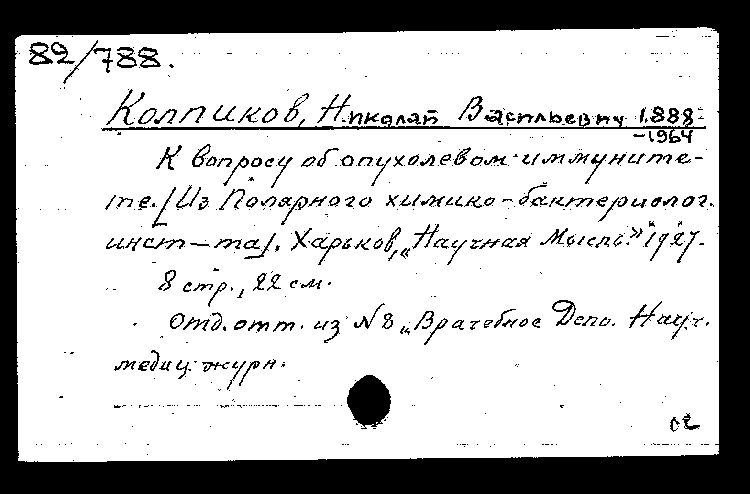 82/788.
Колпиков, Николай Васильевич 1888-
-1964
К вопросу об опухолевом иммуните-
те. [Из Полярного химико-бактериолог.
инст-та]. Харьков, „Научная Мысль" 1927.
8 стр., 22 см.
Отд. отт. из № 8 „Врачебное Дело. Науч.
медиц. журн.